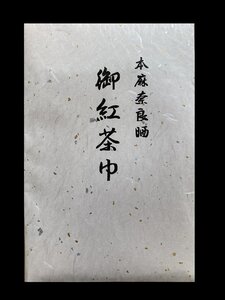 本麻奈良晒
御紅茶巾